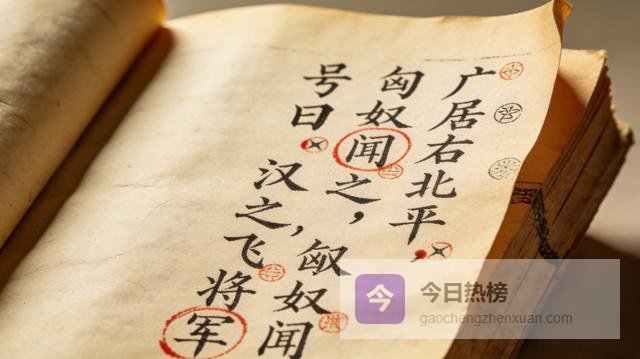 广居右北平,
匈奴闻之,奴闻
号曰汉之,飞将军
今
今日热榜
gaochengzhenxuan.com